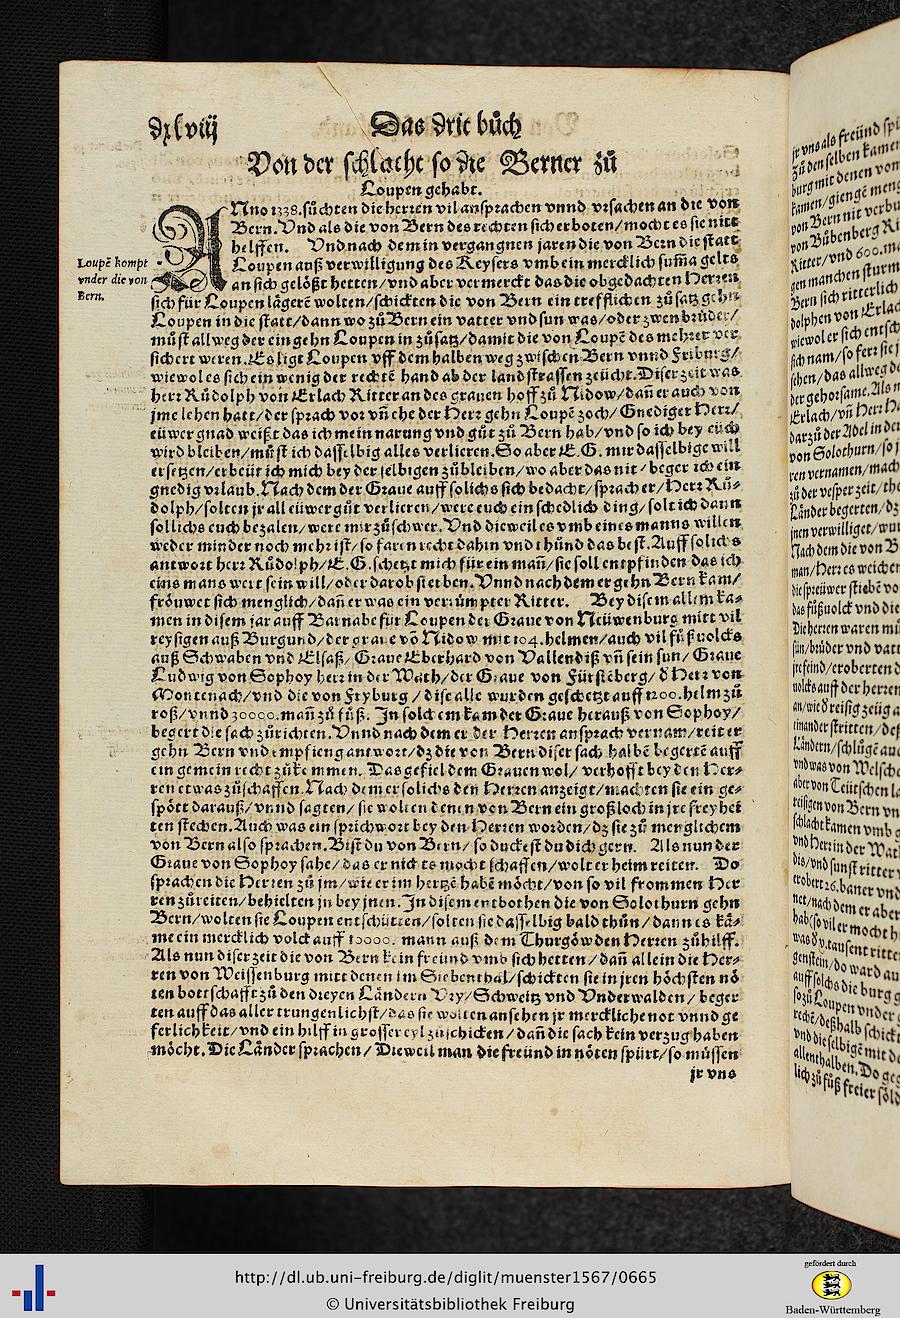 dxlviij
Das drit bůch
Von der schlacht so die Berner zů
Loupen gehabt.
ANno 1338. sůchten die herren vil ansprachen vnnd vrsachen an die von
Bern. Vnd als die von Bern des rechten sich erboten/ mocht es sie nitt
helffen. Vnd nach dem in vergangnen jaren die von Bern die statt
Loupen auß verwilligung des Keysers vmb ein mercklich sum̃a gelts
an sich gelößt hetten/ vnd aber vermerckt das die obgedachten Herren
Loupẽ kompt
vnder die von
Bern.
sich für Loupen lägerẽ wolten/ schickten die von Bern ein trefflichen zůsatz gehn
Loupen in die statt/ dann wo zů Bern ein vatter vnd sun was/ oder zwen brůder/
můst allweg der ein gehn Loupen in zůsatz/ damit die von Loupẽ des mehrer ver
sichert weren. Es ligt Loupen vff dem halben weg zwischen Bern vnnd Friburg/
wiewol es sich ein wenig der rechtẽ hand ab der landstrassen zeücht. Diser zeit was
herr Růdolph von Erlach Ritter an des grauen hoff zů Nidow/ dañ er auch von
jme lehen hatt/ der sprach vor vñ ehe der Herr gehn Loupẽ zoch/ Gnediger Herr/
eüwer gnad weißt das ich mein narung vnd gůt zů Bern hab/ vnd so ich bey euch
wird bleiben/ můst ich dasselbig alles verlieren. So aber E. G. mir dasselbige will
ersetzen/ erbeüt ich mich bey der selbigen zůbleiben/ wo aber das nit/ beger ich ein
gnedig vrlaub. Nach dem der Graue auff solichs sich bedacht/ sprach er/ Herr Rů-
dolph/ solten jr all eüwer gůt verlieren/ were euch ein schedlich ding/ solt ich dann
sollichs euch bezalen/ were mir zů schwer. Vnd dieweil es vmb eines manns willen
weder minder noch mehr ist/ so faren recht dahin vnd thůnd das best. Auff solichs
antwort herr Růdolph/ E. G. schetzt mich für ein mañ/ sie soll entpfinden das ich
eins mans wert sein will/ oder darob sterben. Vnnd nach dem er gehn Bern kam/
fröuwet sich menglich/ dañ er was ein verrümpter Ritter. Bey disem allem ka-
men in disem jar auff Barnabe für Loupen der Graue von Neüwenburg mitt vil
reysigen auß Burgund/ der graue võ Nidow mit 104. helmen/ auch vil fůßuolcks
auß Schwaben vnd Elsaß/ Graue Eberhard von Vallendiß vñ sein sun/ Graue
Ludwig von Sophoy herr in der Wath/ der Graue von Fürstẽberg/ d' Herr von
Montenach/ vnd die von Fryburg/ dise alle wurden geschetzt auff 1200. helm zů
roß/ vnnd 30000. mañ zů fůß. In solchem kam der Graue herauß von Sophoy/
begert die sach zůrichten. Vnnd nach dem er der Herren ansprach vernam/ reit er
gehn Bern vnd empfieng antwort/ dz die von Bern diser sach halbẽ begertẽ auff
ein gemein recht zůkemmen. Das gefiel dem Grauen wol/ verhofft bey den Her-
ren etwas zůschaffen. Nach dem er solichs den Herren anzeigt/ machten sie ein ge-
spött darauß/ vnnd sagten/ sie wolten denen von Bern ein groß loch in jre freyhei
ten stechen. Auch was ein sprichwort bey den Herren worden/ dz sie zů menglichem
von Bern also sprachen. Bist du von Bern/ so duckest du dich gern. Als nun der
Graue von Sophoy sahe/ das er nichts mocht schaffen/ wolt er heim reiten. Do
sprachen die Herren zů jm/ wie er im hertzẽ habẽ möcht/ von so vil frommen Her
ren zů reiten/ behielten jn bey jnen. In disem entbothen die von Solothurn gehn
Bern/ wolten sie Loupen entschütten/ solten sie dasselbig bald thůn/ dann es kä-
me ein mercklich volck auff 12000. mann auß dem Thurgöw den Herren zů hilff.
Als nun diser zeit die von Bern kein freünd vmb sich hetten/ dañ allein die Her-
ren von Weissenburg mitt denen im Siebenthal/ schickten sie in jren höchsten nö
ten bottschafft zů den dreyen Ländern Vry/ Schweitz vnd Vnderwalden/ beger
ten auff das aller trungenlichst/ das sie wolten ansehen jr merckliche not vnnd ge
ferlichkeit/ vnd ein hilff in grosser eyl zůschicken/ dañ die sach kein verzug haben
möcht. Die Länder sprachen/ Dieweil man die freünd in nöten spürt/ so müssen
jr vns
jr vns als freünd
zů den selben
burg mit denen von
kamen/ gienge
von Bern nit
von Bůbenberg
Ritter/ vnd 600.
gen manchen sturm
Bern sich ritterlich
dolphen von Erlac
wiewol er sich
sich nam/ so ferr sie
sehen/ das allweg
der gehorsame. Als
Erlach/ vñ Herr
darzů der Adel in
von Solothurn/
ren vernamen/ mach
zů der vesper zeit/
Länder begerten/ dz
jnen verwilliget/
Nach dem die von B
man/ Herr es weichen
die spreüwer
das fůßuolck vnd die
Die herren waren
sün/ brůder vnd vatt
jre feind/ eroberten
uolcks auff der herren
an/ wie d' reisig zeüg
einander stritten/
Ländern/ schlůgẽ
vnd was von Welsche
aber von Teütschen
reisigen von Bern
schlacht kamen vmb
vnd Herr in der Wat
dis/ vnd sunst ritter
erobert 26. baner vnd
net/ nach dem er aber
hab/ so vil er mocht
tausent ritter
do ward
auff solchs die burg
so zů Loupen vnder
recht/ deßhalb schickt
vnd die selbigẽ mit
allenthalben. Do
lich zů fůß freier söld
http://dl.ub.uni-freiburg.de/diglit/muenster1567/0665
© Universitätsbibliothek Freiburg
gefördert durch
Baden-Württemberg